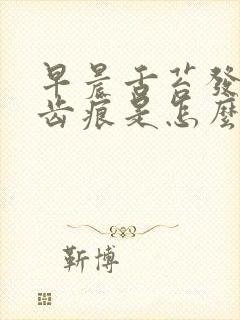 早晨舌苔發
齿痕是怎麼
靳博